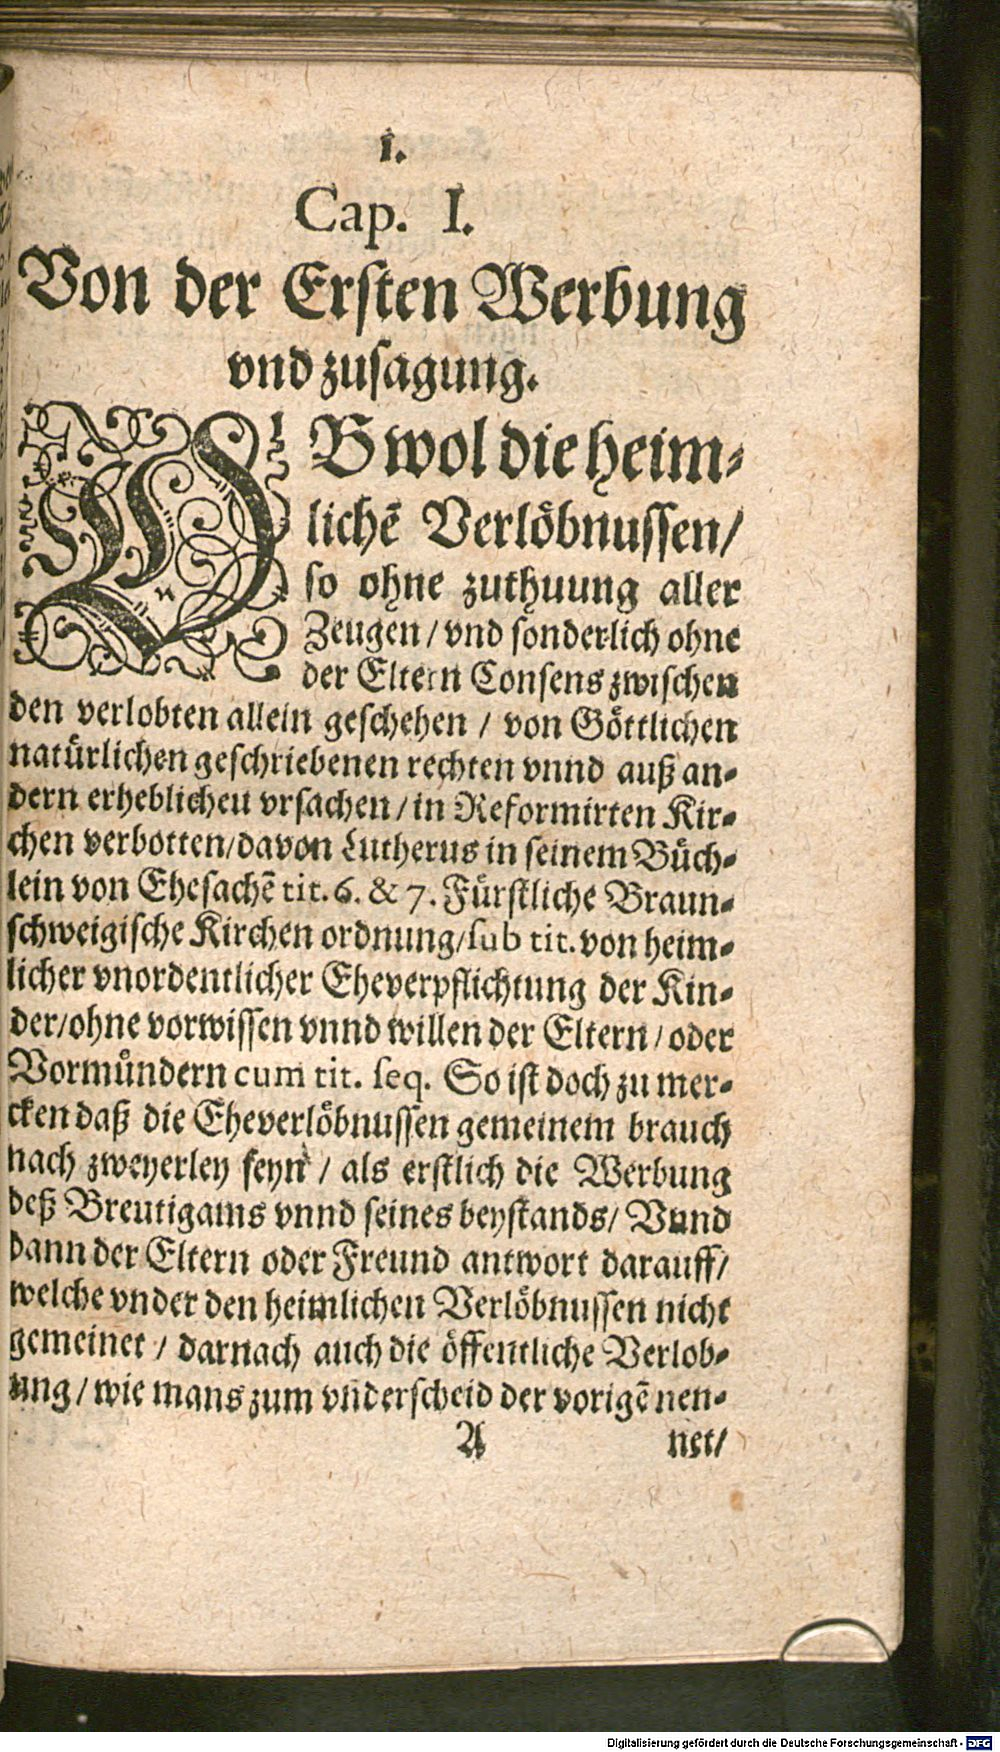 1.
Cap. I.
Von der Ersten Werbung
vnd zusagung.
OB wol die heim-
lichē Verlöbnussen/
so ohne zuthuung aller
Zeugen/ vnd sonderlich ohne
der Eltern Consens zwischen
den verlobten allein geschehen / von Göttlichen
natürlichen geschriebenen rechten vnnd auß an-
dern erheblicheu vrsachen/ in Reformirten Kir-
chen verbotten/davon Lutherus in seinem Büch-
lein von Ehesachē tit. 6. & 7. Fürstliche Braun-
schweigische Kirchen ordnung/sub tit. von heim-
licher vnordentlicher Eheverpflichtung der Kin-
der/ohne vorwissen vnnd willen der Eltern/ oder
Vormündern cum tit. seq. So ist doch zu mer-
cken daß die Eheverlöbnussen gemeinem brauch
nach zweyerley seyn / als erstlich die Werbung
deß Breutigams vnnd seines beystands/ Vnnd
dann der Eltern oder Freund antwort darauff/
welche vnder den heimlichen Verlöbnussen nicht
gemeinet / darnach auch die öffentliche Verlob-
ung/ wie mans zum vnderscheid der vorigē nen-
A net/
Digitalisierung gefördert durch die Deutsche Forschungsgemeinschaft - DFG